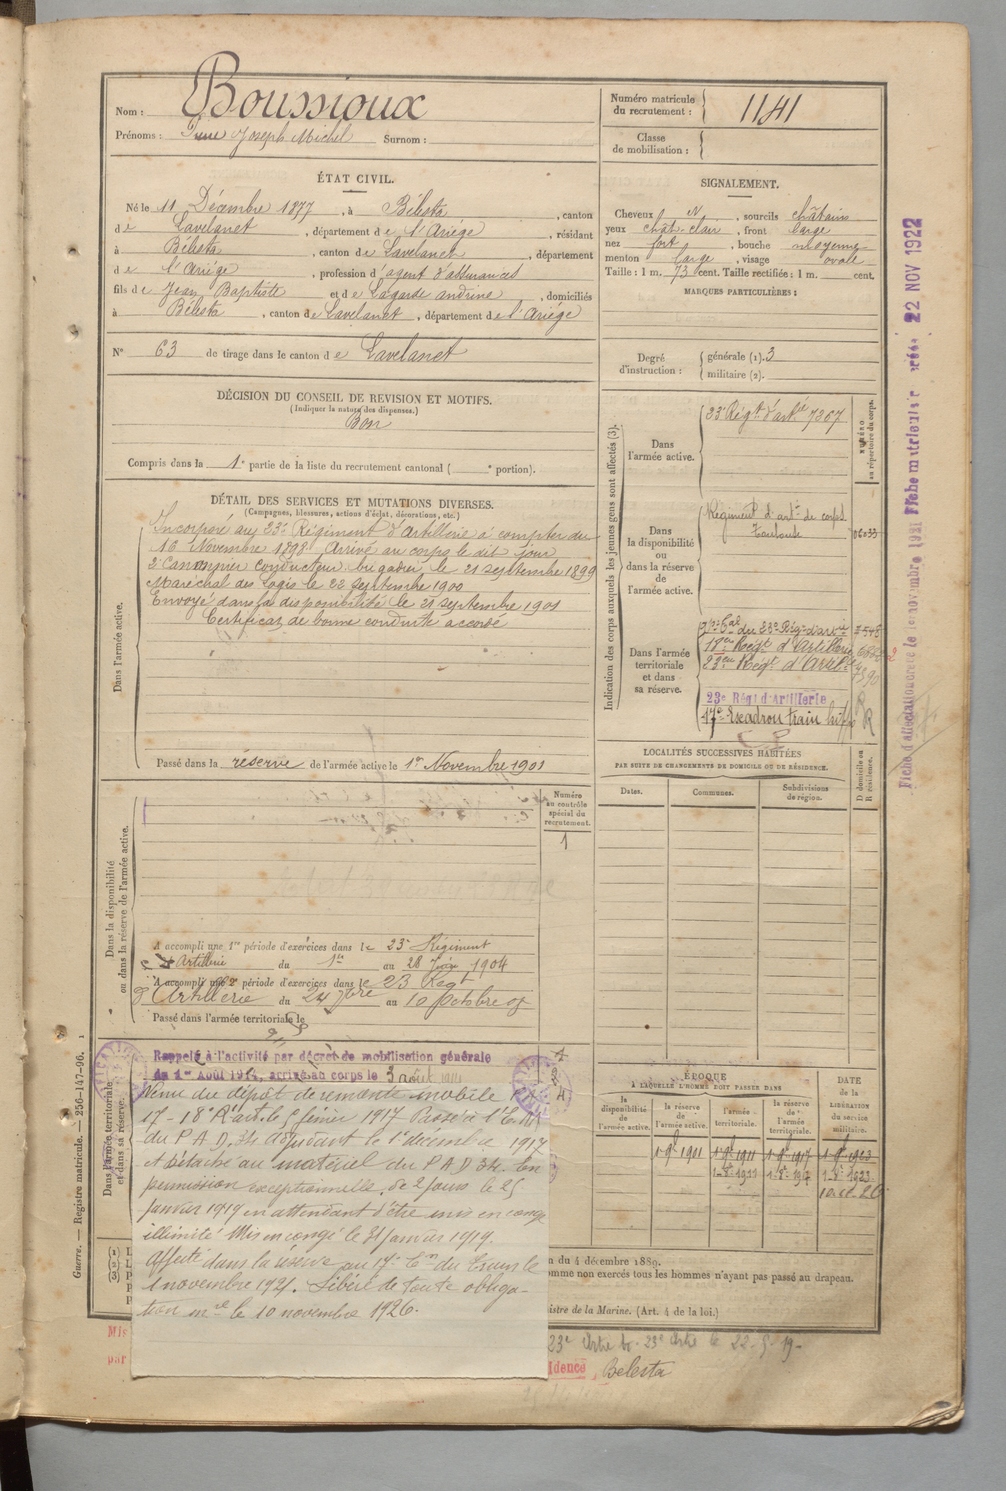 Nom : Boussioux
Prénoms : Joseph Michel Surnom :
Numéro matricule du recrutement : 1141
Classe de mobilisation :
ÉTAT CIVIL.
Né le 11 Décembre 1877, à Bélesta, canton
de Lavelanet, département de l'Ariège, résidant
à Bélesta, canton de Lavelanet, département
de l'Ariège, profession d'agent d'assurances
fils de Jean Baptiste et de Lagarde andrine, domiciliés
à Bélesta, canton de Lavelanet, département de l'Ariège
N° 63 de tirage dans le canton de Lavelanet
SIGNALEMENT.
Cheveux N, sourcils châtains
yeux chât. clair, front large
nez fort, bouche moyenne
menton large, visage ovale
Taille : 1 m. 73 cent. Taille rectifiée : 1 m. cent.
MARQUES PARTICULIÈRES :
Degré d'instruction : générale (1). 3
militaire (2).
DÉCISION DU CONSEIL DE REVISION ET MOTIFS.
(Indiquer la nature des dispenses.)
Bon
Compris dans la 1e partie de la liste du recrutement cantonal ( e portion).
DÉTAIL DES SERVICES ET MUTATIONS DIVERSES.
(Campagnes, blessures, actions d'éclat, décorations, etc.)
Dans l'armée active.
Incorporé au 23e Régiment d'Artillerie à compter du
16 Novembre 1898. Arrivé au corps le dit jour
2e Canonnier conducteur brigadier le 21 septembre 1899
Maréchal des Logis le 22 septembre 1900
Envoyé dans la disponibilité le 21 septembre 1901
Certificat de bonne conduite accordé
Passé dans la réserve de l'armée active le 1er Novembre 1901
Indication des corps auxquels les jeunes gens sont affectés (3).
NUMÉRO au répertoire du corps.
Dans l'armée active.
23e Régt d'artie 7307
Dans la disponibilité ou dans la réserve de l'armée active.
Régiment d'artie de corps
Toulouse 06033
Dans l'armée territoriale et dans sa réserve.
du 23e Rég. d'artie
18eme Régt d'Artillerie
23eme Régt d'Artillie 7590
23e Régt d'Artillerie R
17e Escadron train R
Fiche d'affectation créée le 1er novembre 1921 Fiche matriculaire créée 22 NOV 1922
LOCALITÉS SUCCESSIVES HABITÉES
PAR SUITE DE CHANGEMENTS DE DOMICILE OU DE RÉSIDENCE.
Dates. Communes. Subdivisions de région. D domicile ou R résidence.
Dans la disponibilité ou dans la réserve de l'armée active.
Numéro au contrôle spécial du recrutement.
1
A accompli une 1re période d'exercices dans le 23e Régiment
d'Artillerie du 1er au 28 1904
A accompli une 2e période d'exercices dans le 23 Régt
d'Artillerie du 24 7bre au 10 octobre 07
Passé dans l'armée territoriale le
Dans l'armée territoriale et dans sa réserve.
Rappelé à l'activité par décret de mobilisation générale
du 1er Août 1914, arrivé au corps le 3 août 1914
Venu du dépôt de remonte mobile
17 - 18e R. art. le 5 février 1917 Passé à l'E.M.
du P A D 34 adjudant le 1er décembre 1917
et détaché au matériel du P A D 34. En
permission exceptionnelle de 2 jours le 25
janvier 1919 en attendant d'être mis en congé
illimité Mis en congé le 31 janvier 1919.
Affecté dans la réserve au 17e Em du Train le
1 novembre 1921. Libéré de toute obliga-
tion mre le 10 novembre 1926.
ÉPOQUE
À LAQUELLE L'HOMME DOIT PASSER DANS
la disponibilité de l'armée active. la réserve de l'armée active. l'armée territoriale. la réserve de l'armée territoriale. DATE de la LIBÉRATION du service militaire.
1-9bre 1901 1-9bre 1911 1-9bre 1917 1-9bre 1923
1-8e 1911 1-8e 1917 1-8e 1923
Guerre. — Registre matricule. — 256-147-96. 1
(1)
(2)
(3)
n du 4 décembre 1889.
omme non exercés tous les hommes n'ayant pas passé au drapeau.
istre de la Marine. (Art. 4 de la loi.)
Mis
par
23e Artie 23e Artie le 22-5-19-
idence Belesta